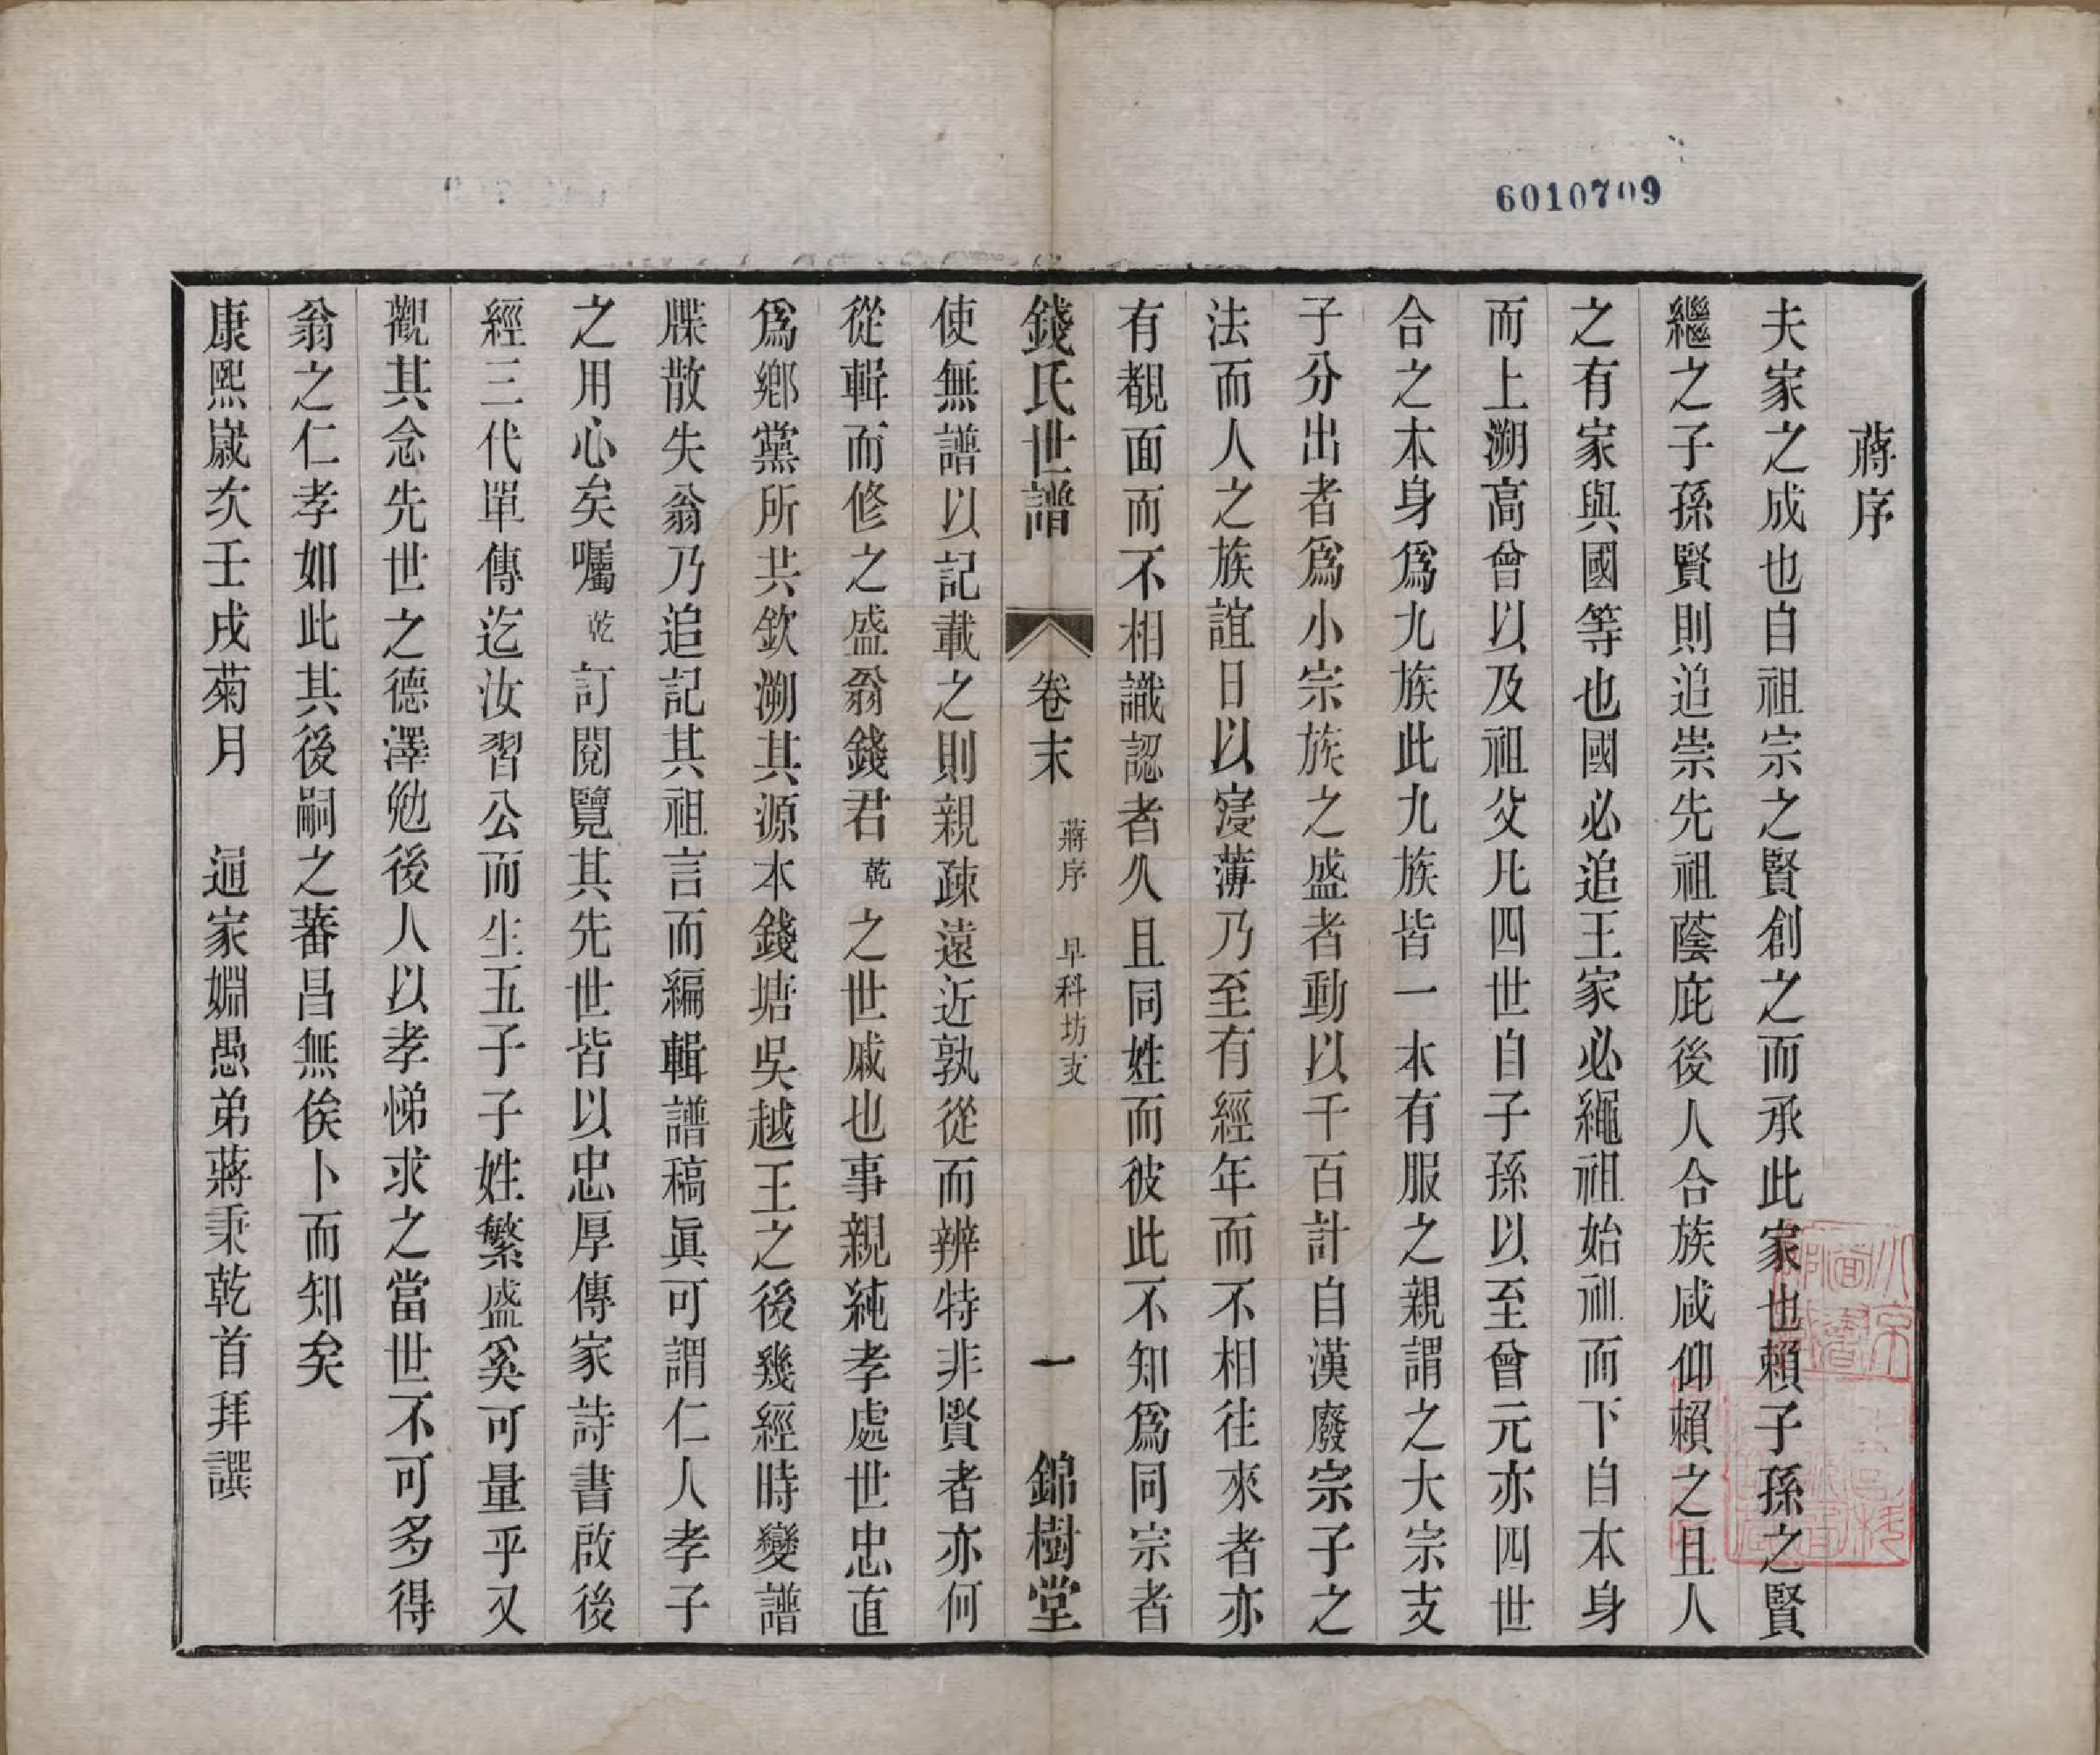 6010709
蔣序
夫家之成也自祖宗之賢創之而承此家也賴子孫之賢
繼之子孫賢則追崇先祖蔭庇後人合族咸仰賴之且人
之有家與國等也國必追王家必繩祖始祖而下自本身
而上溯高曾以及祖父凡四世自子孫以至曾元亦四世
合之本身爲九族此九族皆一本有服之親謂之大宗支
子分出者爲小宗族之盛者動以千百計自漢廢宗子之
法而人之族誼日以寖薄乃至有經年而不相往來者亦
有覩面而不相識認者久且同姓而彼此不知爲同宗者
錢氏世譜 卷末 蔣序 早科坊支 一 錦樹堂
使無譜以記載之則親疎遠近孰從而辨特非賢者亦何
從輯而修之盛翁錢君乾之世戚也事親純孝處世忠直
爲鄉黨所共欽溯其源本錢塘吳越王之後幾經時變譜
牒散失翁乃追記其祖言而編輯譜稿眞可謂仁人孝子
之用心矣囑乾訂閱覽其先世皆以忠厚傳家詩書啟後
經三代單傳迄汝習公而生五子子姓繁盛奚可量乎又
觀其念先世之德澤勉後人以孝悌求之當世不可多得
翁之仁孝如此其後嗣之蕃昌無俟卜而知矣
康熙嵗次壬戌菊月 通家姻愚弟蔣秉乾首拜譔